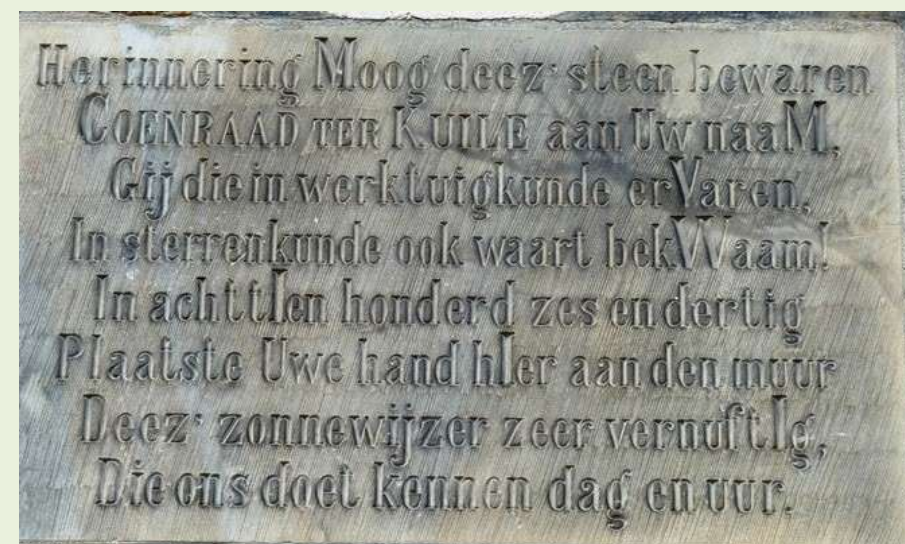 Herinnering Moog deez' steen bewaren
COENRAAD TER KUILE aan Uw naaM,
Gij die in werktuigkunde erVaren,
In sterrenkunde ook waart bekWaam!
In achttIen honderd zes en dertig
Plaatste Uwe hand hIer aan den muur
Deez' zonnewijzer zeer vernuftIg,
Die ons doet kennen dag en uur.